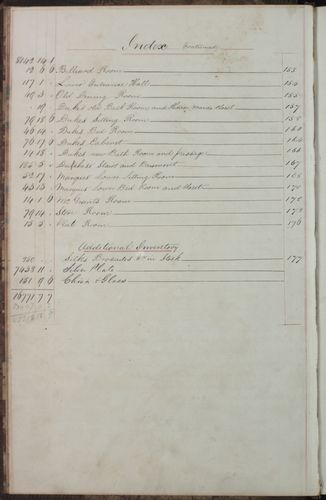 Index continued
8142 14 1
12 6 6 Billiard Room 153
117 1 - Lower Entrance Hall 154
49 3 - Old Dining Room 155
- 19 - Dukes Old Bath Room and House maids closet 157
79 18 6 Dukes Sitting Room 158
46 14 - Dukes Bed Room
70 17 6 Dukes Cabinet 164
14 18 - Dukes new Bath Room and passage 166
Duchess Stairs and Basement 167
52 17 - Marquess Lower Sitting Room 168
45 15 - Marquess Lower Bed Room and closet 170
14 1 6 Mc Grants Room 175
79 14 - Store Room
15 5 - Plate Room 176
Additional Inventory
250 - - Silks Brocades &c in Stock 177
7453 11 - Silver Plate
151 9 6 China & Glass
16771 7 7